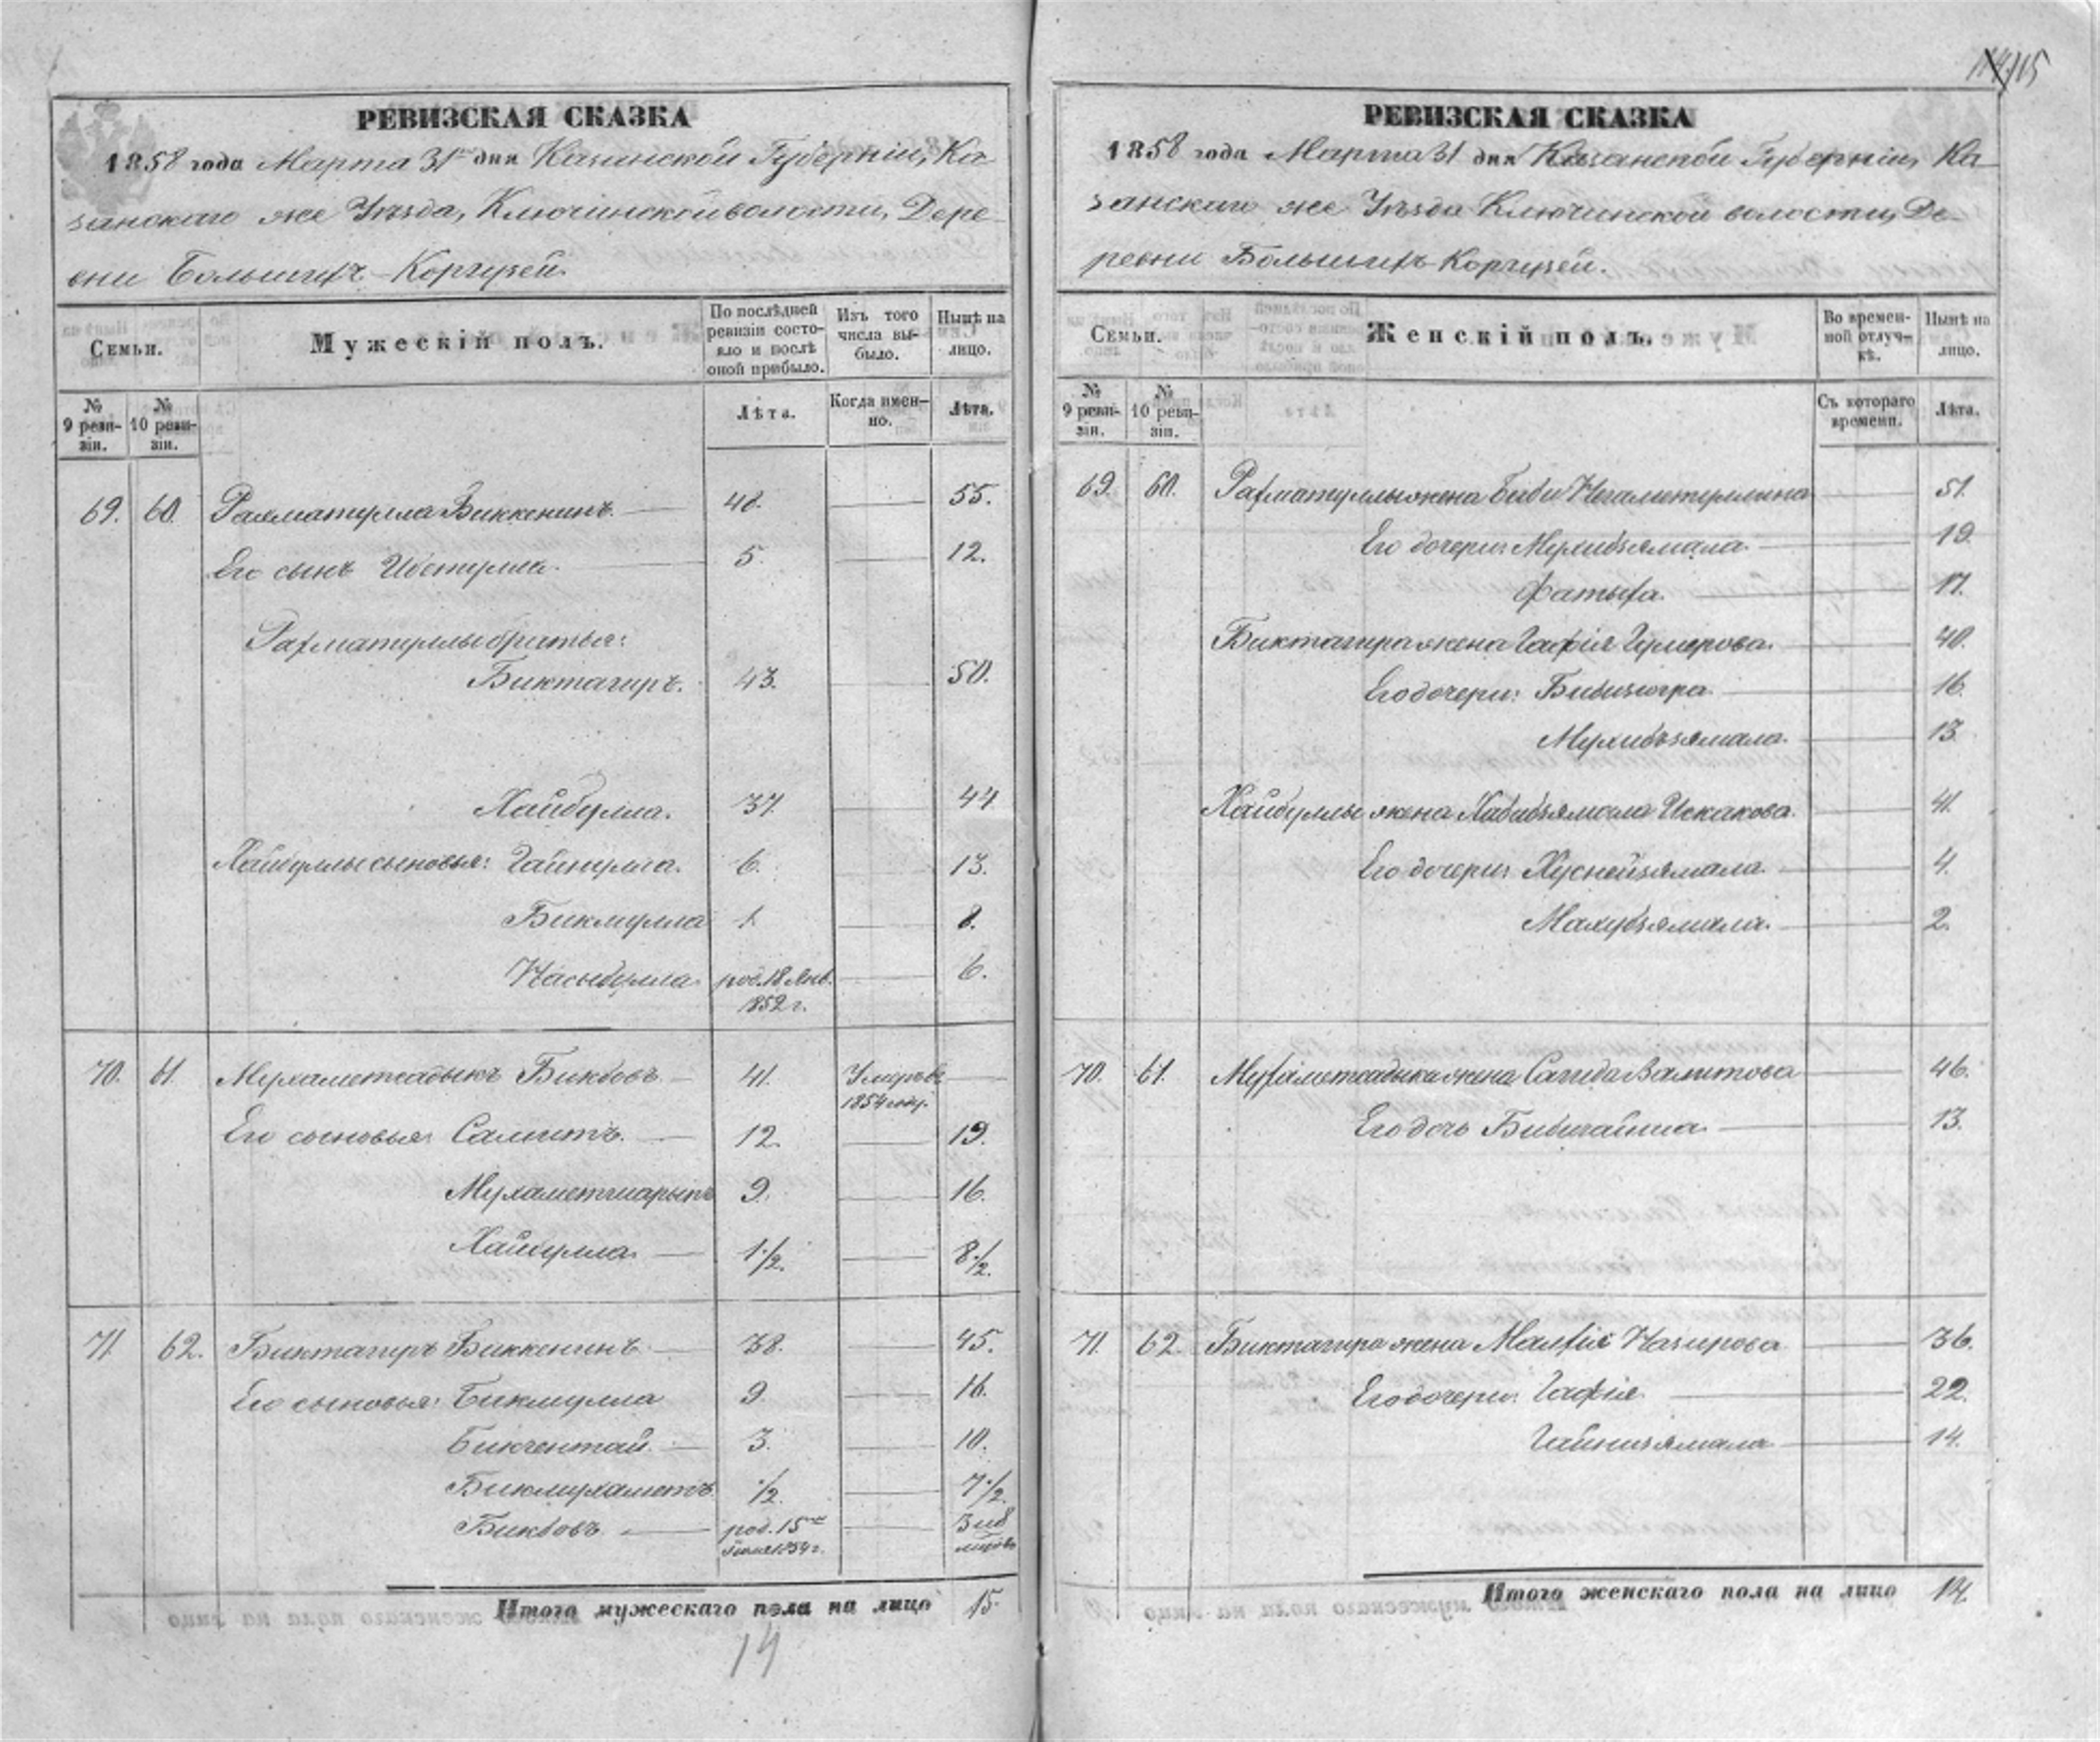 115
РЕВИЗСКАЯ СКАЗКА
1858 года Марта 31 дня Казанской Губерніи, Ка-
занскаго же Уѣзда, Ключинской волости, Дере-
вни Большихъ Коргузей.
Семьи.
Мужескій полъ.
По послѣдней ревизіи состо-яло и послѣ оной прибыло.
Изъ того числа вы-было.
Нынѣ на лицо.
№ 9 реви-зіи.
№ 10 реви-зіи.
Лѣта.
Когда имен-но.
Лѣта.
69. 60. Рахматулла Биккенинъ. 48. 55.
Его сынъ 5. 12.
Рахматуллы братья:
Биктагиръ. 43. 50.
Хайбулла. 37. 44
Хайбуллы сыновья: Гайнулла. 6. 13.
Бикмулла 1. 8.
Насыбулла. род. 18 Янв. 6.
1852 г.
70. 61. Мухаметсадыкъ Бикбовъ 41. Умеръ въ
1854 году.
Его сыновья: Самитъ. 12. 19.
Мухаметшарыпъ 9. 16.
Хайбулла. 1 1/2. 8 1/2.
71. 62. Биктагиръ Биккенинъ 38. 45.
Его сыновья: Бикмулла 9. 16.
Бикчентай. 3. 10.
Бикмухаметъ 1/2. 7 1/2.
Бикбовъ. род. 15го 3 и 8
1854 г. мѣсяцовъ
Итого мужескаго пола на лицо 15.
14
РЕВИЗСКАЯ СКАЗКА
1858 года Марта 31 дня Казанской Губерніи, Ка-
занскаго же Уѣзда Ключинской волости, Де-
ревни Большихъ Коргузей.
Семьи.
Женскій полъ.
Во времен-ной отлуч-кѣ.
Нынѣ на лицо.
№ 9 реви-зіи.
№ 10 реви-зіи.
Съ котораго времени.
Лѣта.
69. 60. Рахматуллы жена Биби Негаметуллина 51.
Его дочери: Мухибзямала. 19.
Фатыха. 17.
Биктагира жена Гафія Гумерова. 40.
Его дочери: Бибизюгра. 16.
Мухибъзямала. 13.
Хайбуллы жена Хабибзямала Искакова. 41.
Его дочери: Хуснейзямала. 4.
Махубзямала. 2.
70. 61. Мухаметсадыка жена Сагида Валитова 46.
Его дочь Бибигайша. 13.
71. 62. Биктагира жена Назирова 36.
Его дочери: Гафія. 22.
Гайнизямала 14.
Итого женскаго пола на лицо 14.